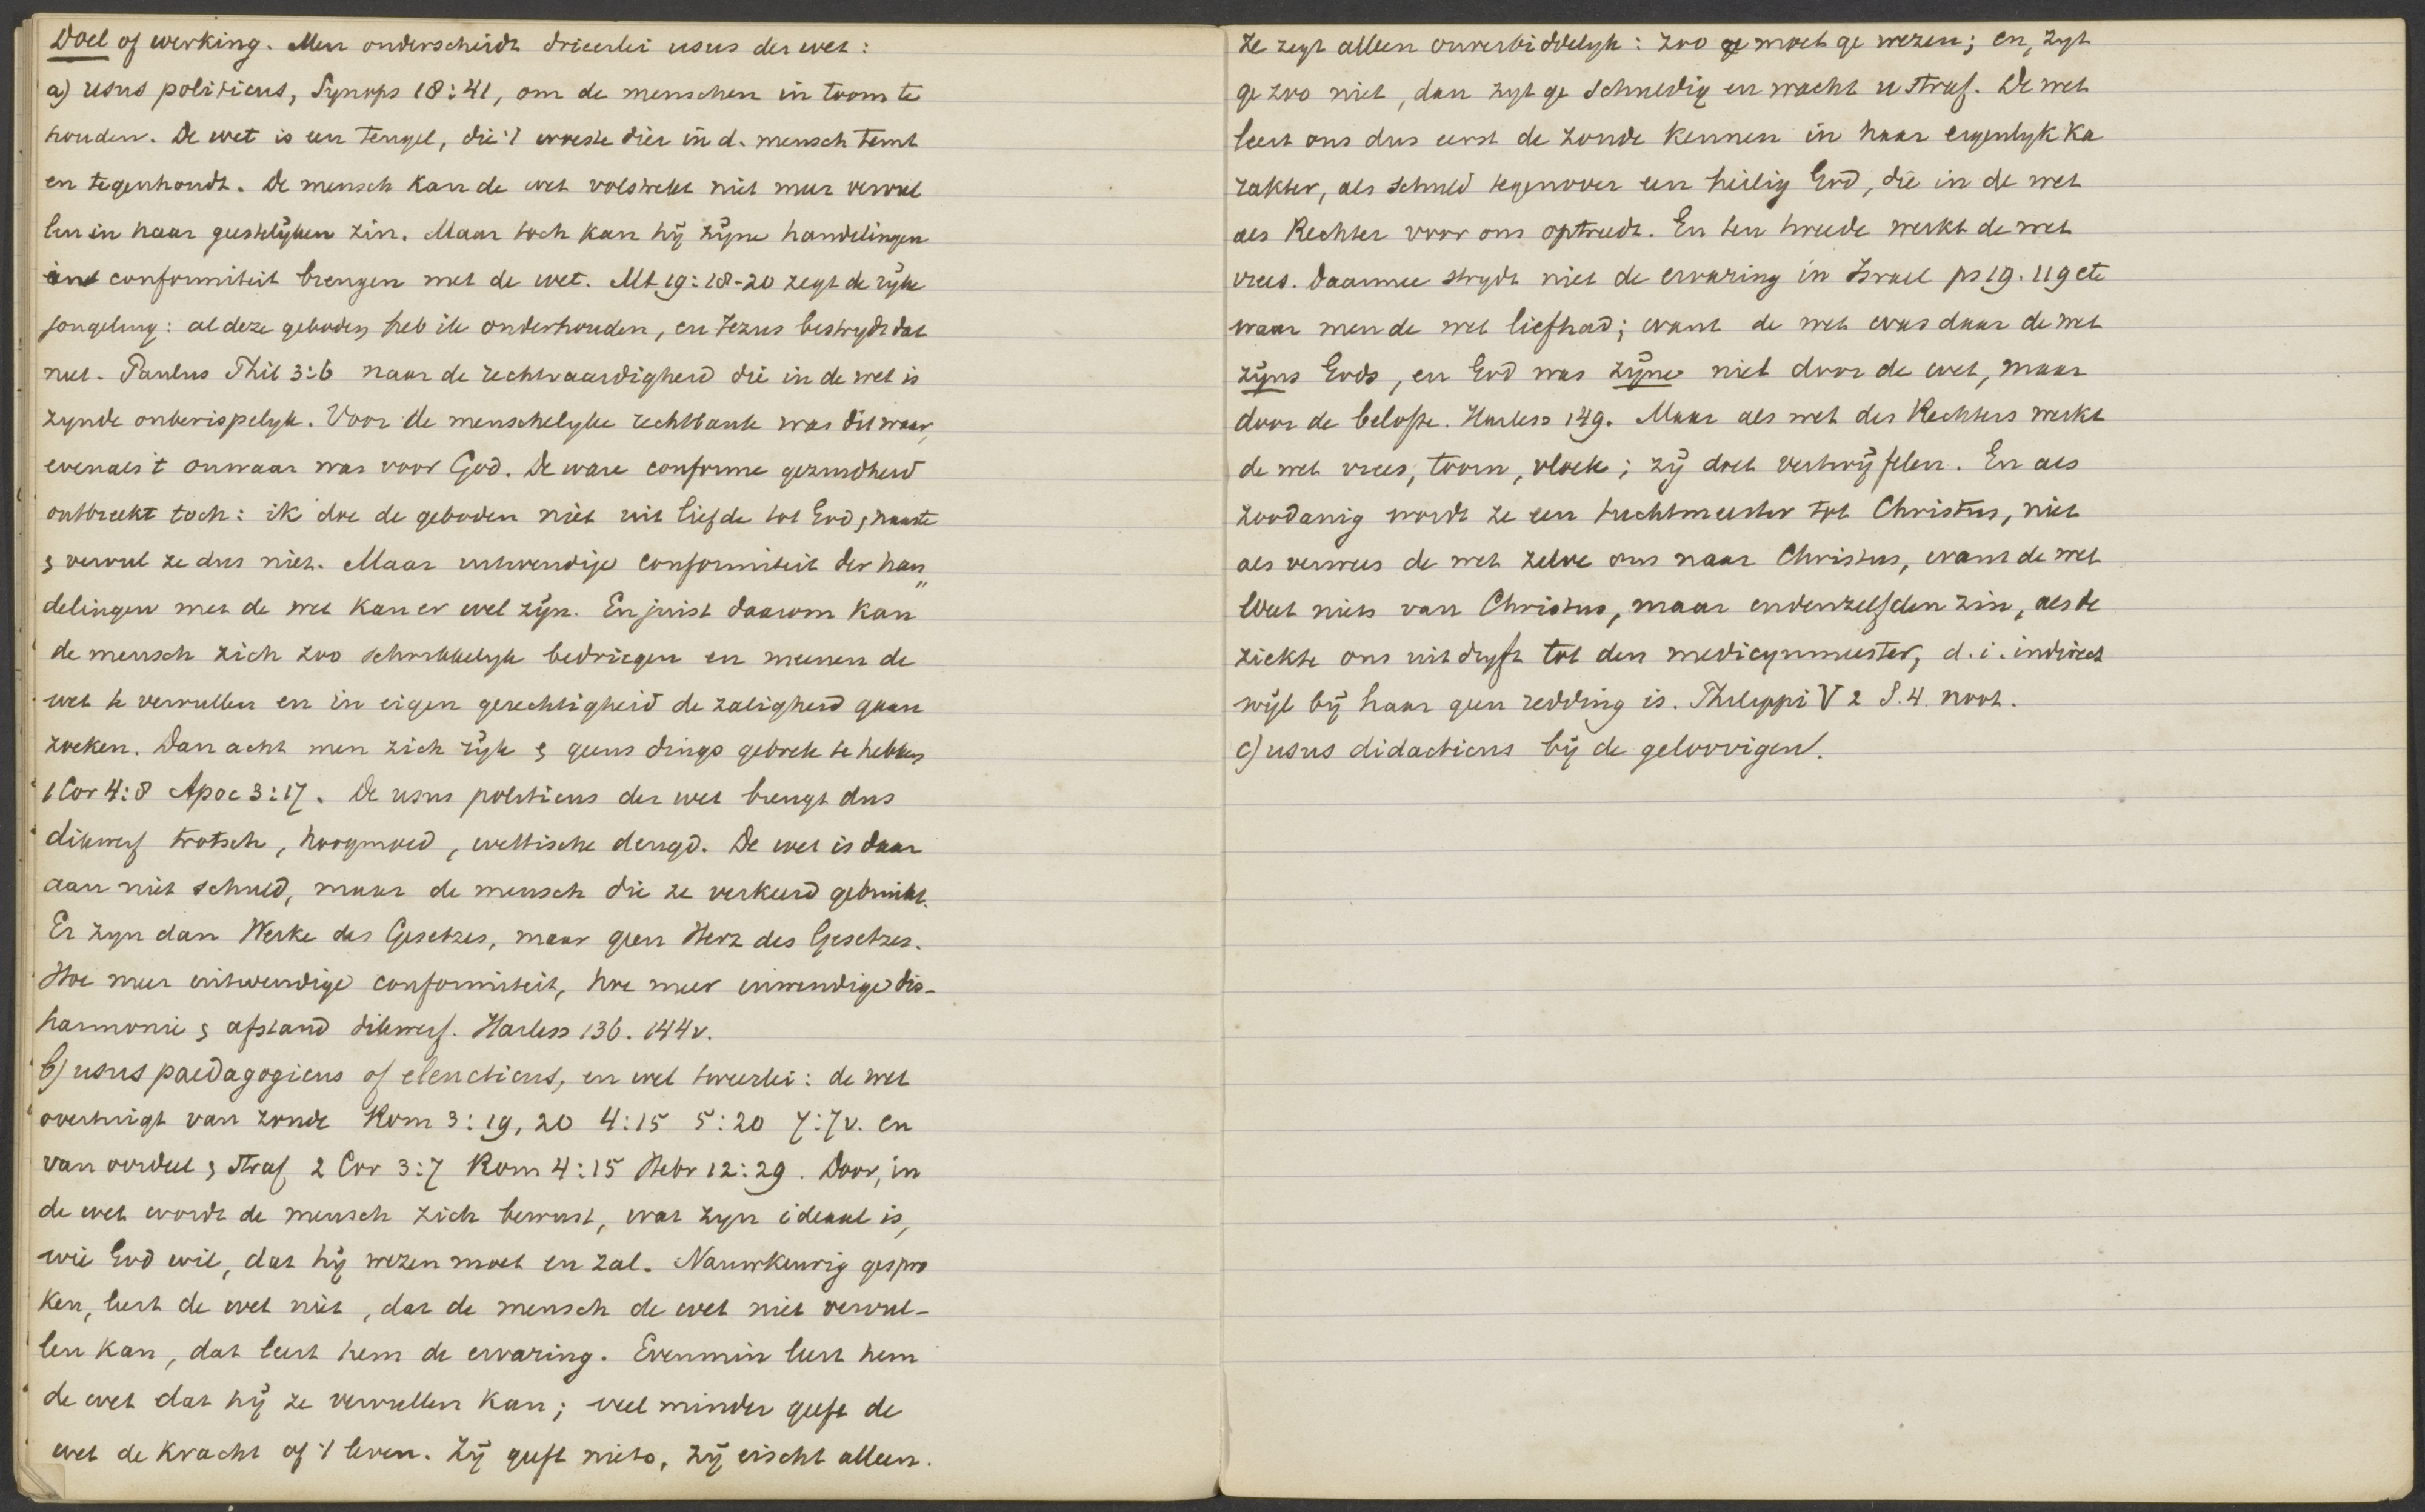 Doel of werking. Men onderscheidt drieerlei usus der wet:
a) usus politicus, Synops 18:41, om de menschen in toom te
houden. De wet is een teugel, die 't woeste dier in d. mensch temt
en tegenhoudt. De mensch kan de wet volstrekt niet meer vervul
len in haar geestelijken zin. Maar toch kan hij zijne handelingen
in conformiteit brengen met de wet. Mt 19:18-20 zegt de rijke
jongeling: al deze geboden heb ik onderhouden, en Jezus bestrijdt dat
niet. Paulus Phil 3:6 naar de rechtvaardigheid die in de wet is
zynde onberispelyk. Voor de menschelyke rechtbank was dit waar,
evenals 't onwaar was voor God. De ware conforme gezindheid
ontbreekt toch: ik doe de geboden niet uit liefde tot God, naaste
& vervul ze dus niet. Maar uitwendige conformiteit der han„
delingen met de wet kan er wel zijn. En juist daarom kan
de mensch zich zoo schrikkelyk bedriegen en meenen de
wet te vervullen en in eigen gerechtigheid de zaligheid gaan
zoeken. Dan acht men zich rijk & geens dings gebrek te hebben
1 Cor 4:8 Apoc 3:17. De usus politicus der wet brengt dus
dikwerf trotsch, hoogmoed, wettische deugd. De wet is daar
aan niet schuld, maar de mensch die ze verkeerd gebruikt.
Er zyn dan Werke des Gesetzes, maar geen Herz des Gesetzes.
Hoe meer uitwendige conformiteit, hoe meer inwendige dis-
harmonie & afstand dikwerf. Harless 136. 144v.
b) usus paedagogicus of elencticus, en wel tweeerlei: de wet
overtuigt van zonde Rom 3:19, 20 4:15 5:20 7:7v. en
van oordeel & straf 2 Cor 3:7 Rom 4:15 Hebr 12:29. Door, in
de wet wordt de mensch zich bewust, wat zyn ideaal is,
wie God wil, dat hij wezen moet en zal. Nauwkeurig gespro
ken, leert de wet niet, dat de mensch de wet niet vervul-
len kan, dat leert hem de ervaring. Evenmin leert hem
de wet dat hij ze vervullen kan; veel minder geeft de
wet de kracht of 't leven. Zij geeft niets, zij eischt alleen.
Ze zegt alleen onverbiddelyk: zoo moet ge wezen; en, zyt
ge zoo niet, dan zyt ge schuldig en wacht u straf. De wet
leert ons dus eerst de zonde kennen in haar eigenlyk ka
rakter, als schuld tegenover een heilig God, die in de wet
als Rechter voor ons optreedt. En ten tweede werkt de wet
vrees. Daarmee strydt niet de ervaring in Israel ps 19. 119 etc
waar men de wet liefhad; want de wet was daar de wet
zijns Gods, en God was zijne niet door de wet, maar
door de belofte. Harless 149. Maar als wet des Rechters werkt
de wet vrees, toorn, vloek; zij doet vertwijfelen. En als
zoodanig wordt ze een tuchtmeester tot Christus, niet
als verwees de wet zelve ons naar Christus, want de wet
weet niets van Christus, maar in denzelfden zin, als de
ziekte ons uitdryft tot den medicynmeester, d.i. indirect
wijl bij haar geen redding is. Philippi V 2 S. 4 noot.
c) usus didacticus bij de geloovigen.